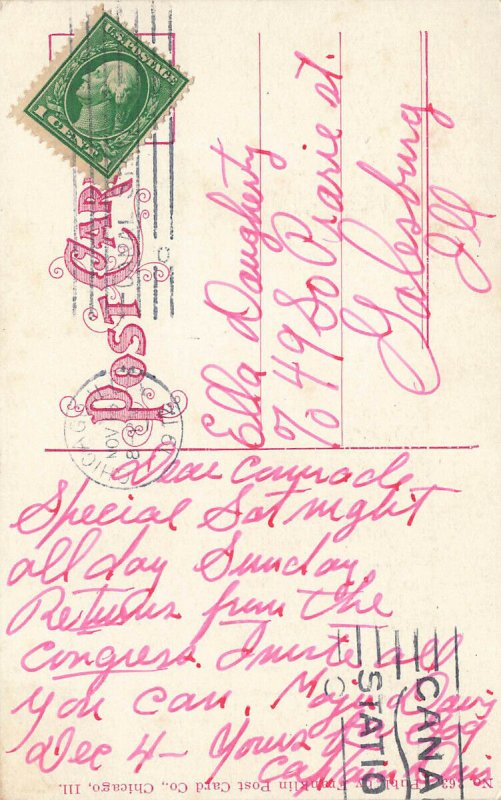 U.S. POSTAGE
1 CENT 1
POST CARD
CHICAGO
NOV
Ella Daugherty
% 49 So Prarie st.
Galesburg
Ill
Dear Comrade
Special Sat night
all day Sunday
Returns from the
Congress. Invite all
you can. Major Davis
Dec 4 - Yours
CANA
STATIO
Franklin Post Card Co., Chicago, Ill.